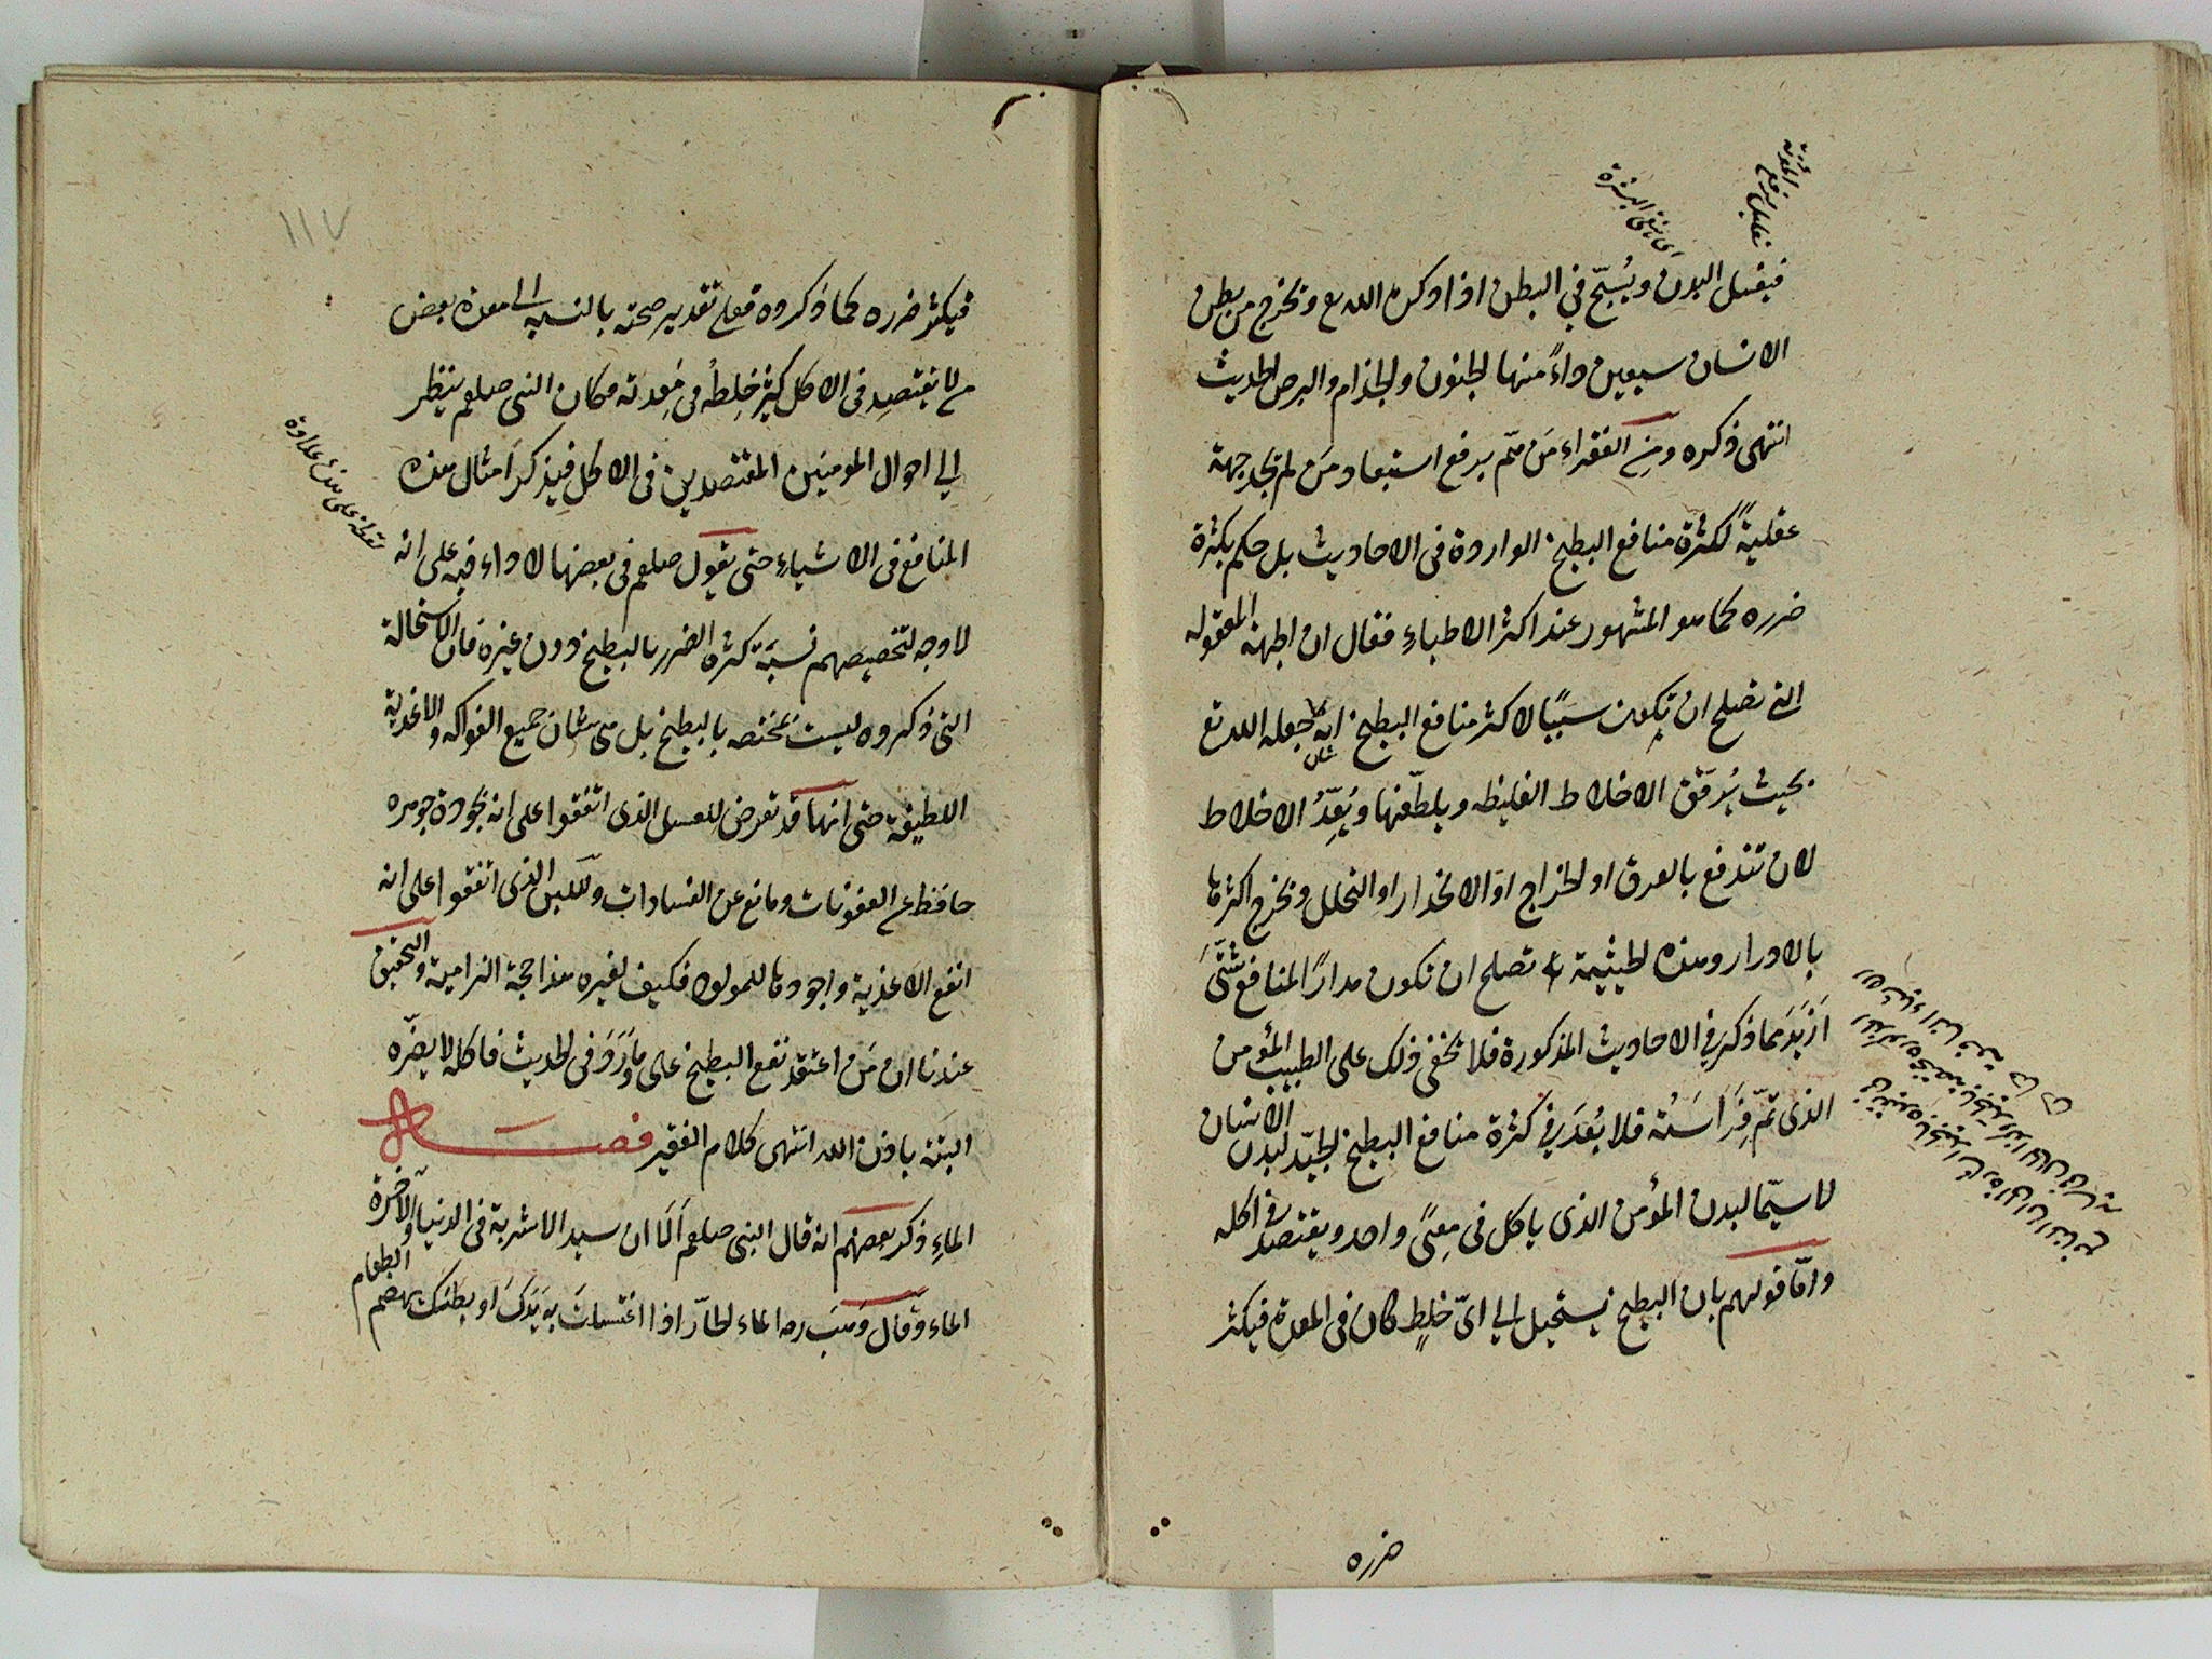 فيغسل البدن ويُسَبّح في البطن اذا اوكرم الله تع ويخرج من بطن
الانسان سبعين داءً منها الجنون والجذام والبرص الحديث
انتهى ذكره ومن الفقراء مَن تمّم برفع استبعاد مَن لم يجد جهة
عقليةً لكثرة منافع البطيخ الواردة في الاحاديث بل حكم بكثرة
ضرره كما هو المشهور عند اكثر الاطباء فقال ان الجهة المعقوله
التي تصلح ان يكون سببًا لاكثر منافع البطيخ انه جعله الله تع
بحيث يُرقّق الاخلاط الغليظه ويلطّفها ويُعِدُّ الاخلاط
لان تندفع بالعرق او الخراج او الانحدار او التحلل ويخرج اكثرها
بالادرار وهذه الحيثية تصلح ان تكون مدارًا لمنافع شتّى
ازيَدَ مما ذكر في الاحاديث المذكورة فلا يخفى ذلك على الطبيب المؤمن
الذى تمّ فِرَاسَتُه فلا بُعدَ في كثرة منافع البطيخ الجيّد لبدن الانسان
لاسيّما لبدن المؤمن الذى ياكل في مِعًى واحد ويقتصد في اكله
وامّا قولهم بان البطيخ يستحيل الى اىّ خلطٍ كان في المعدة فيكثر
ضرره
١١٧
فيكثر ضرره كما ذكروه فعلى تقدير صحته بالنسبه الى معدة بعض
من لا يقتصد في الاكل كثير خلطُه في مَعِدته وكان النبى صلعم ينظر
الى احوال المومنين المقتصدين في الاكل فيذكر امثال هذه
المنافع في الاشياء حتى يقول صلعم في بعضها لا داء فيه على انه
لا وجه لتخصيصهم نسبَة كثرة الضرر بالبطيخ دون غيره فان الاستحالة
التى ذكروه ليست مختصه بالبطيخ بل هى شان جميع الفواكه والاغذية
اللطيفة حتى انها قد تعرض للعسل الذى اتفقوا على انه بجودة جوهره
حافظ عن العفونات ومانع عن الفسادات وللّبن الذى اتفقوا على انه
انفع الاغذية واجودها للمولود فكيف لغيره هذا حجة الزامية والتحقيق
عندنا ان مَن اعتقد نفع البطيخ على ما وَرَدَ في الحديث فاكله لا يضّره
البتة باذن الله انتهى كلام الفقير فصل
الماءِ ذكر بعضهم انه قال النبى صلعم اَلَا ان سيد الاشربة في الدنيا والآخرة
الماء وقال وَهَب ره الماء الحارّ اذا اغتسلتَ به يَدَكَ او بطنك يهضم الطعام